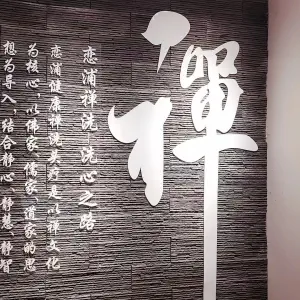 禅
恋浦禅洗 洗心之路
恋浦健康禅洗头疗是以禅文化
为核心，以佛家、儒家、道家的思
想为导入，结合静心、静慧、静智